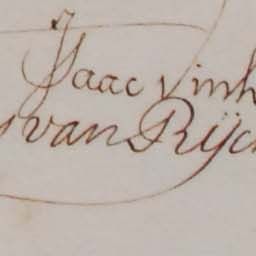 Isaac Vinh
van Rijc